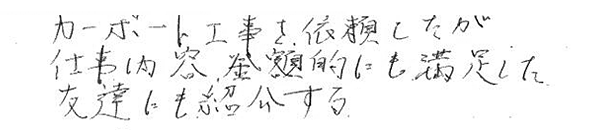 カーポート工事を依頼したが
仕事内容、金額的にも満足した
友達にも紹介する